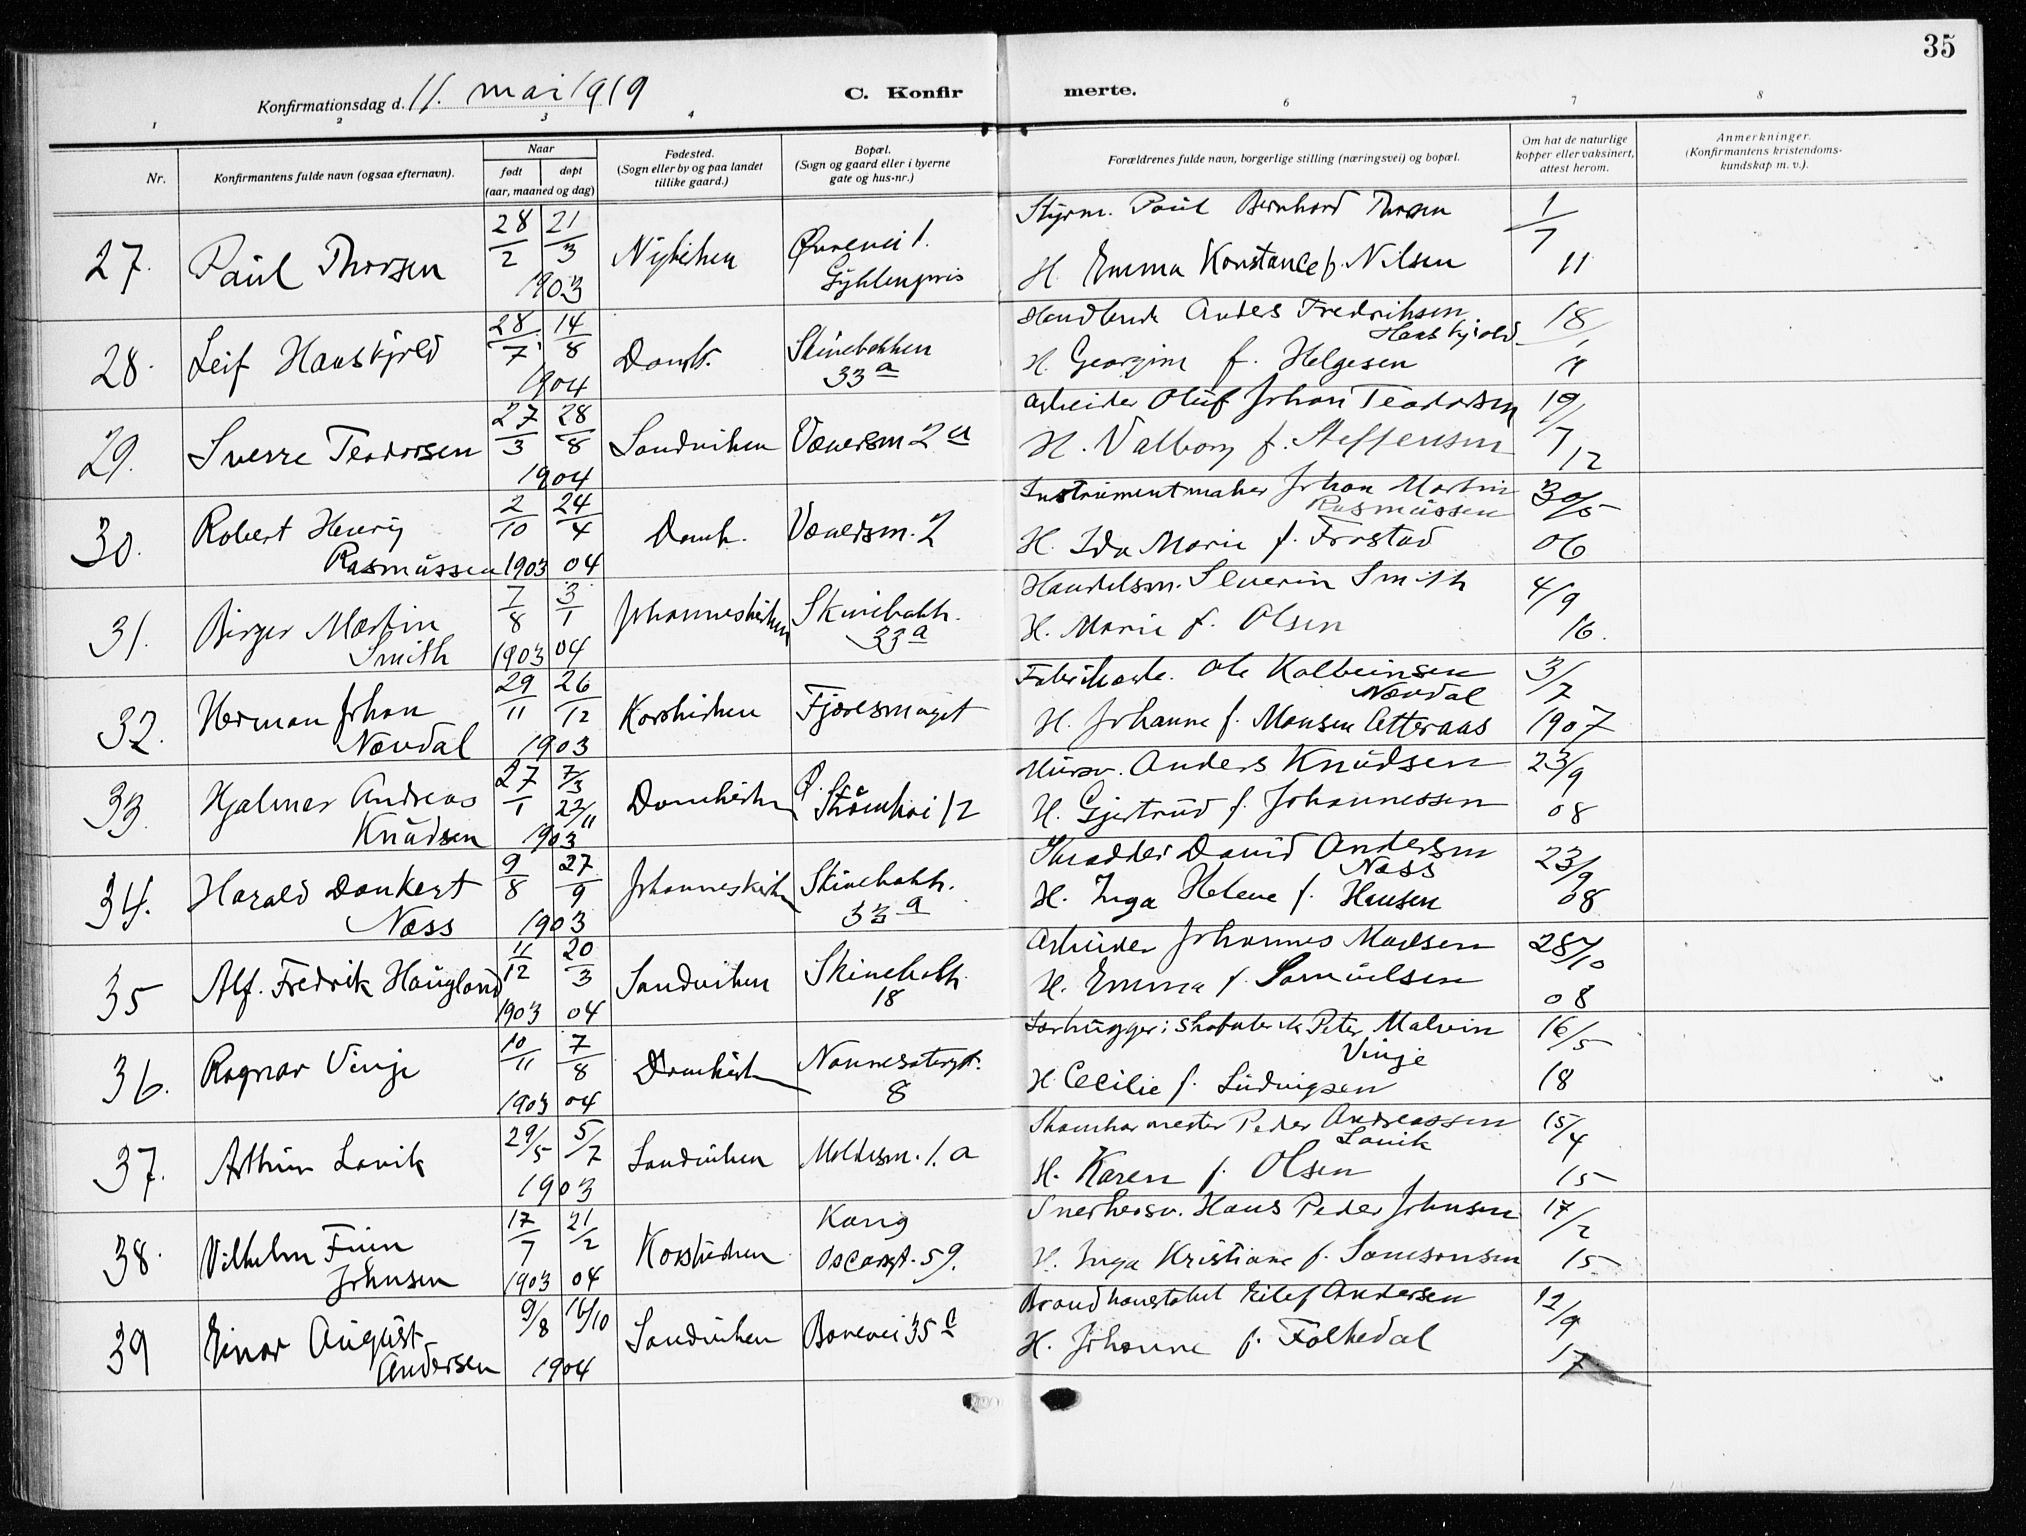 35
Konfirmationsdag d. 11. mai 1919
C. Konfir merte.
1 2 3 4 6 7 8
Nr.
Konfirmantens fulde navn (ogsaa efternavn).
Naar
født døpt
(aar, maaned og dag)
Fødested.
(Sogn eller by og paa landet
tillike gaard.)
Bopæl.
(Sogn og gaard eller i byerne
gate og hus-nr.)
Forældrenes fulde navn, borgerlige stilling (næringsvei) og bopæl.
Om hat de naturlige
kopper eller vaksinert,
attest herom.
Anmerkninger.
(Konfirmantens kristendoms-
kundskap m. v.).
27. Paul Thorsen 28/2 21/3 1903 Nykirken Øvrevei 1.
Gyldenpris
Styrm. Paul Bernhard Thorsen 1/7
H. Emma Konstance f. Nilsen 11
28. Leif Haaskjold 28/7 14/8 1904 Domk. Skivebakken
33 a
Anders Fredriksen
Haaskjold 18/
H. Georgine f. Helgesen
29. Sverre Teodorsen 27/3 28/8 1904 Sandviken Væversm. 2 a
Arbeider Oluf Johan Teodorsen 19/7
H. Valborg f. Steffensen 12
30. Robert Henry
Rasmussen 2/10 1903 24/4 04 Domk. Væversm. 2
Instrumentmaker Johan Martin
Rasmussen 30/5
H. Ida Marie f. Frostad 06
31. Birger Martin
Smith 7/8 1903 3/1 04 Johanneskirken Skivebakk.
33 a
Handelsm. Severin Smith 4/9
H. Marie f. Olsen 16.
32. Herman Johan
Nævdal 29/11 26/12 1903 Korskirken Fjøsesmuget
Fabrikarb. Ole Kolbeinsen
Nævdal 3/7
H. Johanne f. Monsen Atteraas 1907
33. Hjalmar Andreas
Knudsen 27/1 7/3 22/11 1903 Domkirken Ø. Strømkai 12
Mursv. Anders Knudsen 23/9
H. Gjertrud f. Johannessen 08
34. Harald Dankert
Næss 9/8 27/9 1903 Johanneskirken Skivebakk.
33 a
Skrædder David Andersen
Næss 23/9
H. Inga Helene f. Hansen 08
35 Alf. Fredrik Haugland 11/12 1903 20/3 04 Sandviken Skivebakk.
18
Arbeider Johannes Madsen 28/10
H. Emma f. Samuelsen 08
36. Ragnar Vinje 10/11 1903 7/8 04 Domkirken Nonnesætergt.
8
Lærhugger i Skofabrik Peter Malvin
Vinje 16/5
H. Cecilie f. Ludvigsen 18
37. Arthur Lavik 29/5 5/7 1903 Sandviken Moldesm. 1. a
Peder Andreassen
Lavik 15/4
H. Karen f. Olsen 15
38. Vilhelm Finn
Johnsen 17/7 1903 21/2 04 Korskirken Kong
Oscarsgt. 59.
Snekkersv. Hans Peder Johnsen 17/2
H. Inga Kristiane f. Samsonsen 15
39 Einar August
Andersen 9/8 16/10 1904 Sandviken Bonevei 35 c
Brandkonstabel Eilef Andersen 12/9
H. Johanne f. Folkedal 17